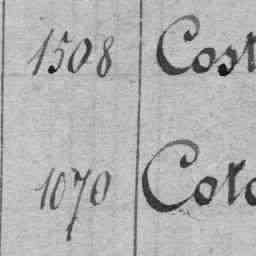 1508 Cost
1070 Coto